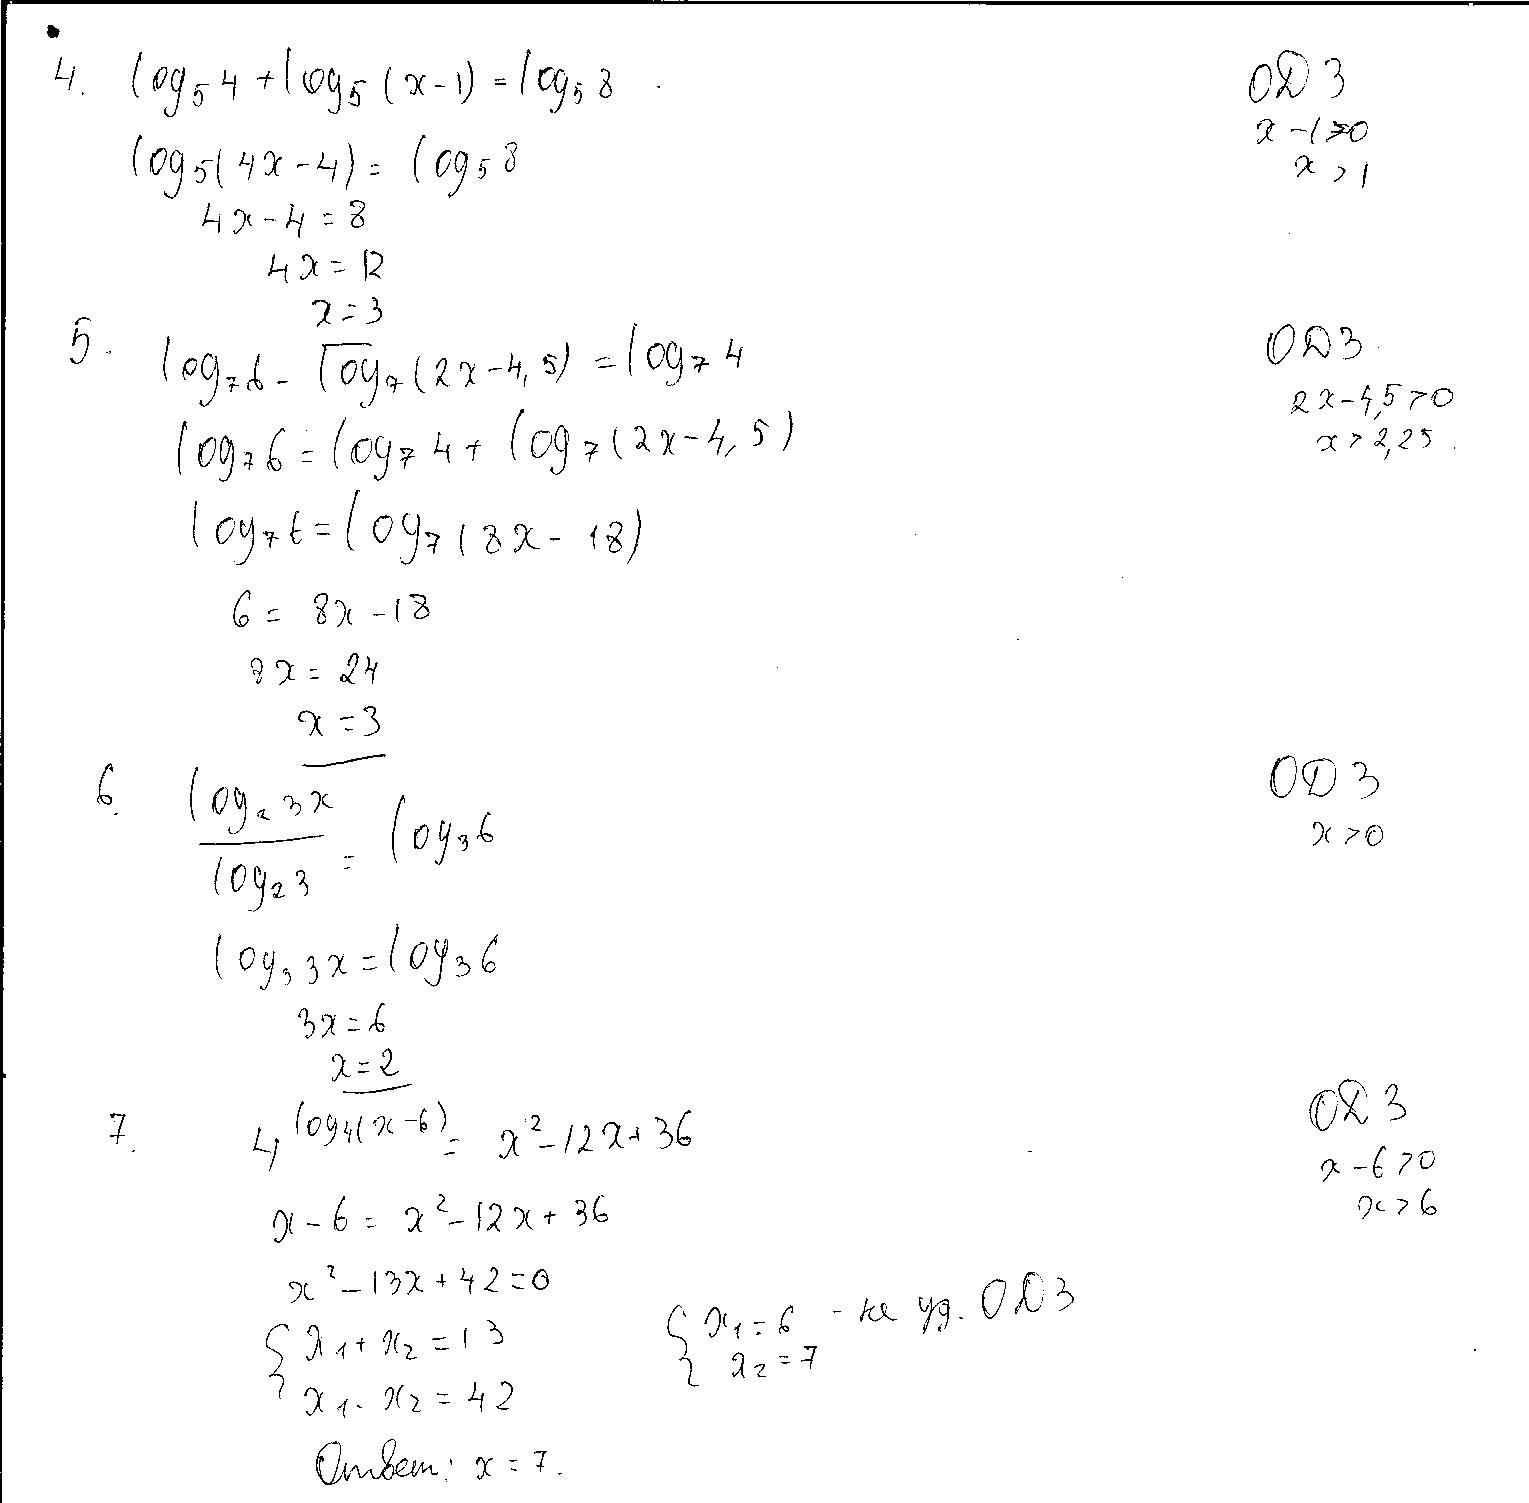 4. log₅4 + log₅(x-1) = log₅8
ОДЗ
x-1>0
x>1
log₅(4x-4) = log₅8
4x-4=8
4x=12
x=3
5. log₇6 - log₇(2x-4,5) = log₇4
ОДЗ
2x-4,5>0
x>2,25.
log₇6 = log₇4 + log₇(2x-4,5)
log₇6 = log₇(8x-18)
6 = 8x-18
8x = 24
x = 3
6. log₂3x / log₂3 = log₃6
ОДЗ
x>0
log₃3x = log₃6
3x=6
x=2
7. 4^(log₄(x-6)) = x²-12x+36
ОДЗ
x-6>0
x>6
x-6 = x²-12x+36
x²-13x+42=0
{ x₁+x₂=13
x₁·x₂=42
{ x₁=6 - не уд. ОДЗ
x₂=7
Ответ: x=7.